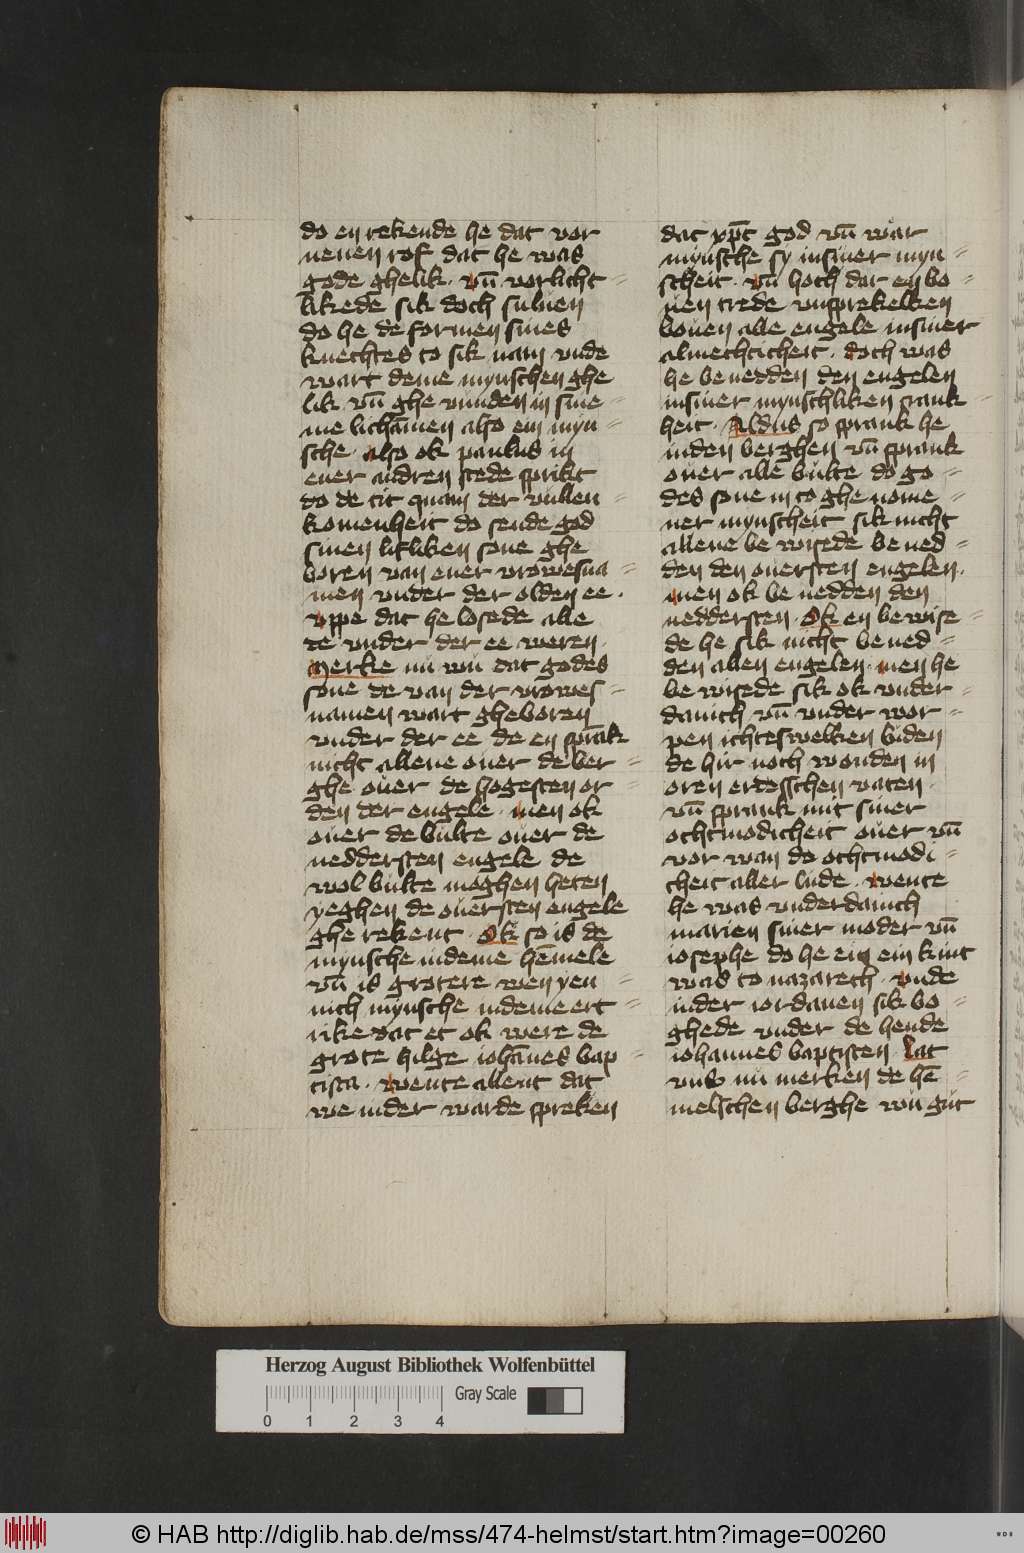 do en rekende he dat vor
nenen rof dat he was
gode ghelik · vn̄ vorlicht=
likede sik doch suluen
do he de formen sines
knechtes to sik nam vnde
wart deme mynschen ghe
lik · vn̄ ghe vunden in sine=
me lichāmen also ein myn=
sche · also ok paulus in
ener andren stede sprikt
do de tit quam der vullen=
komenheit do sende god
sinen lifliken sone ghe
boren van ener vrowesna=
men vnder der olden ee ·
vppe dat he losede alle
te vnder der ee weren ·
Merke nu wu dat godes
sone de van der vrowes=
namen wart gheboren
vnder der ee de en sprāk
nicht allene ouer de ber=
ghe ouer de hogesten or=
den der engele · men ok
ouer de bulte ouer de
neddersten engele de
wol bulte moghen heten
yeghen de ouersten engele
ghe rekent · Ok so is de
mynsche indeme hēmele
vn̄ is grotere wen yen=
nich mynsche indeme ert=
rike dat et ok were de
grote hilge iohānes bap=
tista · wente allent dat
we inder warde spreken
dat xp̄c god vn̄ war
mynsche sy insiner myn=
scheit · vn̄ hoch dar en bo=
uen trede vnsprekelken
bouen alle engele insiner
almechticheit · doch was
he benedden den engelen
insiner mynschliken crank=
heit · Aldus so sprank he
inden berghen vn̄ sprank
ouer alle bulte do go=
des sone in to ghe nome=
ner mynscheit sik nicht
allene be wisede be ned=
den den ouersten engelen ·
men ok be nedden den
neddersten · Ok en bewise=
de he sik nicht be ned=
den allen engelen · men he
be wisede sik ok vnder=
danich vn̄ vnder wor=
pen ichteswelken luden
de hir noch wonden in
oren erdesschen vaten ·
vn̄ sprank mit siner
othmodicheit ouer vn̄
vor wan do othmodi=
cheit aller lude · wente
he was vnderdanich
marien siner moder vn̄
iosephe do he ein kint
was to nazareth · vnde
inder iordanen sik bo=
ghede vnder de hende
iohannes baptisten · Lat
vns nu merken de hē=
melschen berghe wu gut
Herzog August Bibliothek Wolfenbüttel
Gray Scale
0 1 2 3 4
© HAB http://diglib.hab.de/mss/474-helmst/start.htm?image=00260